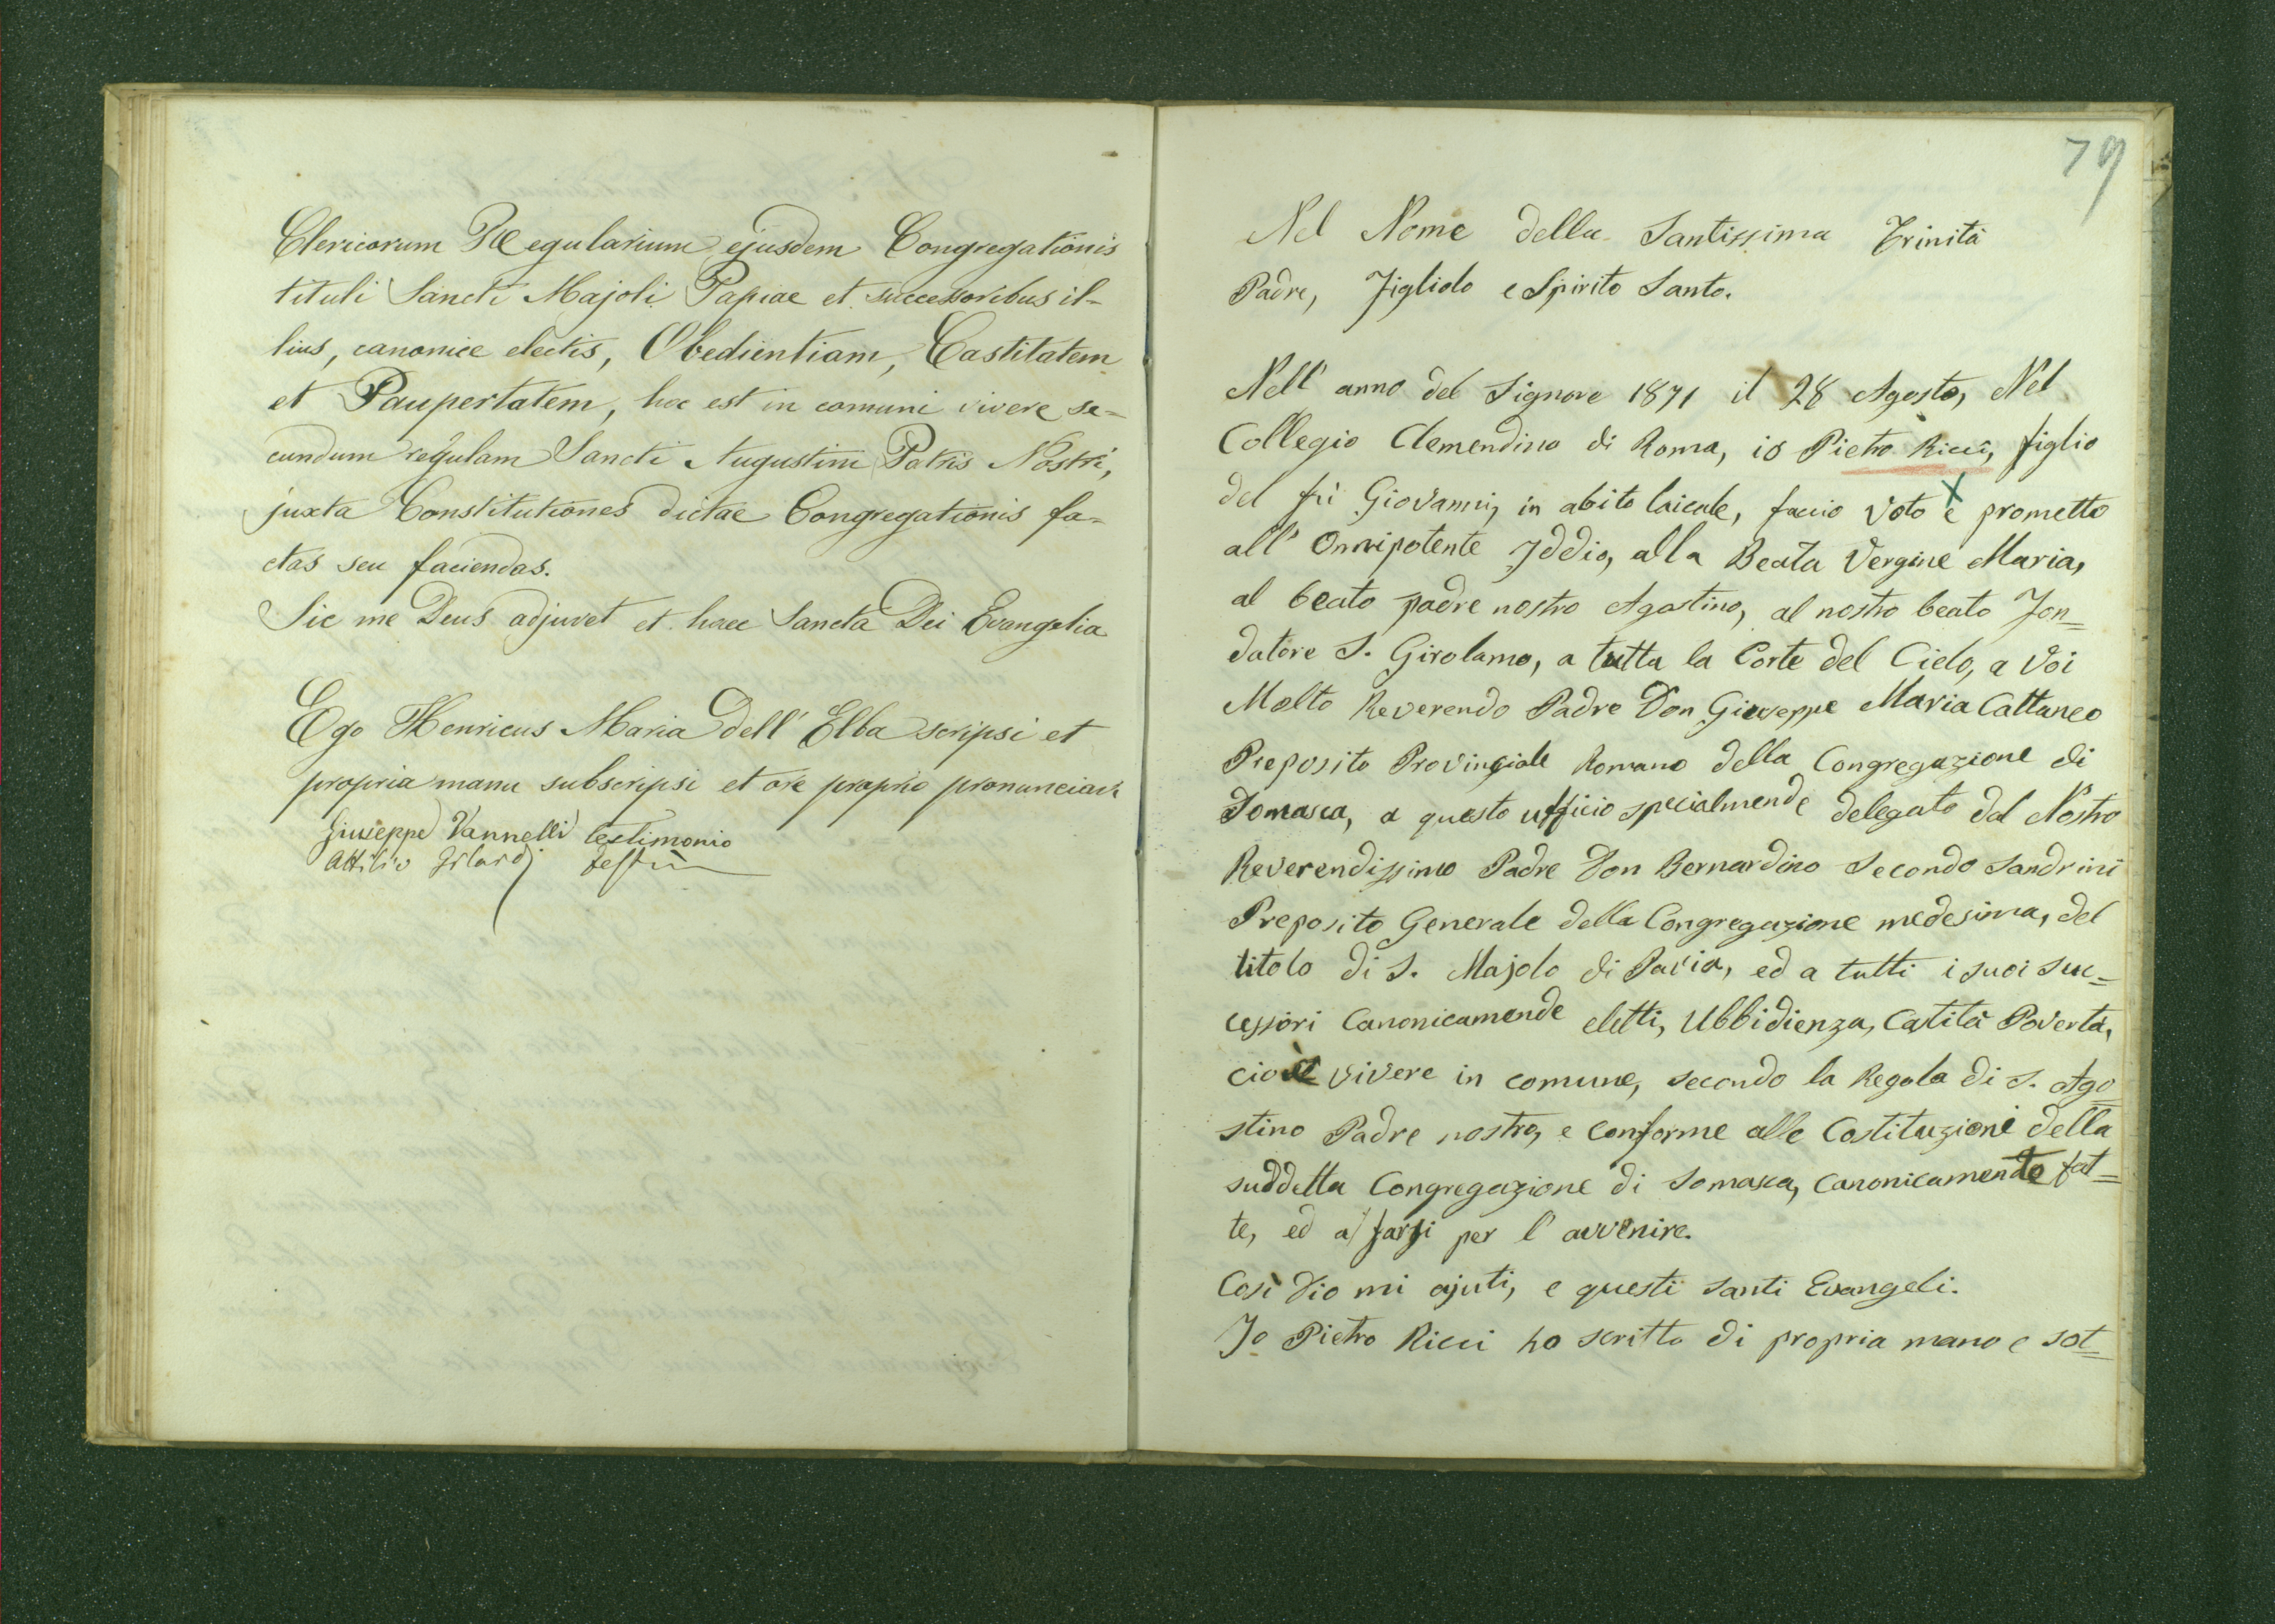 Clericorum Regularium ejusdem Congregationis
tituli Sancti Majoli Papiae et successoribus il-
lius, canonice electis, Obedientiam, Castitatem
et Paupertatem, hoc est in comuni vivere se-
cundum regulam Sancti Augustini Patris Nostri,
juxta Constitutiones dictae Congregationis fa-
ctas seu faciendas.
Sic me Deus adjuvet et haec Sancta Dei Evangelia
Ego Henricus Maria Dell' Elba scripsi et
propria manu subscripsi et ore proprio pronunciavi
Giuseppe Vannelli testimonio
Attilio
79
Nel Nome della Santissima Trinità
Padre, Figliolo e Spirito Santo.
Nell' anno del Signore 1871 il 28 Agosto, Nel
Collegio Clemendino di Roma, io Pietro Ricci, figlio
del fù Giovanni, in abito laicale, faccio voto e prometto
all' Onnipotente Iddio, alla Beata Vergine Maria,
al beato padre nostro Agostino, al nostro beato Fon=
datore S. Girolamo, a tutta la Corte del Cielo, a Voi
Molto Reverendo Padre Don Giuseppe Maria Cattaneo
Preposito Provinciale Romano della Congregazione di
Somasca, a questo ufficio specialmende delegato dal Nostro
Reverendissimo Padre Don Bernardino Secondo Sandrini
Preposito Generale della Congregazione medesima, del
titolo di S. Majolo di Pavia, ed a tutti i suoi suc=
cessori Canonicamende eletti, Ubbidienza, Catità Povertà,
cioè vivere in comune, secondo la Regola di S. Ago=
stino Padre nostro, e conforme alle Costituzioni della
suddetta Congregazione di Somasca, canonicamente fat=
te, ed a farsi per l' avvenire.
Così Dio mi ajuti, e questi santi Evangeli.
Io Pietro Ricci ho scritto di propria mano e sot=